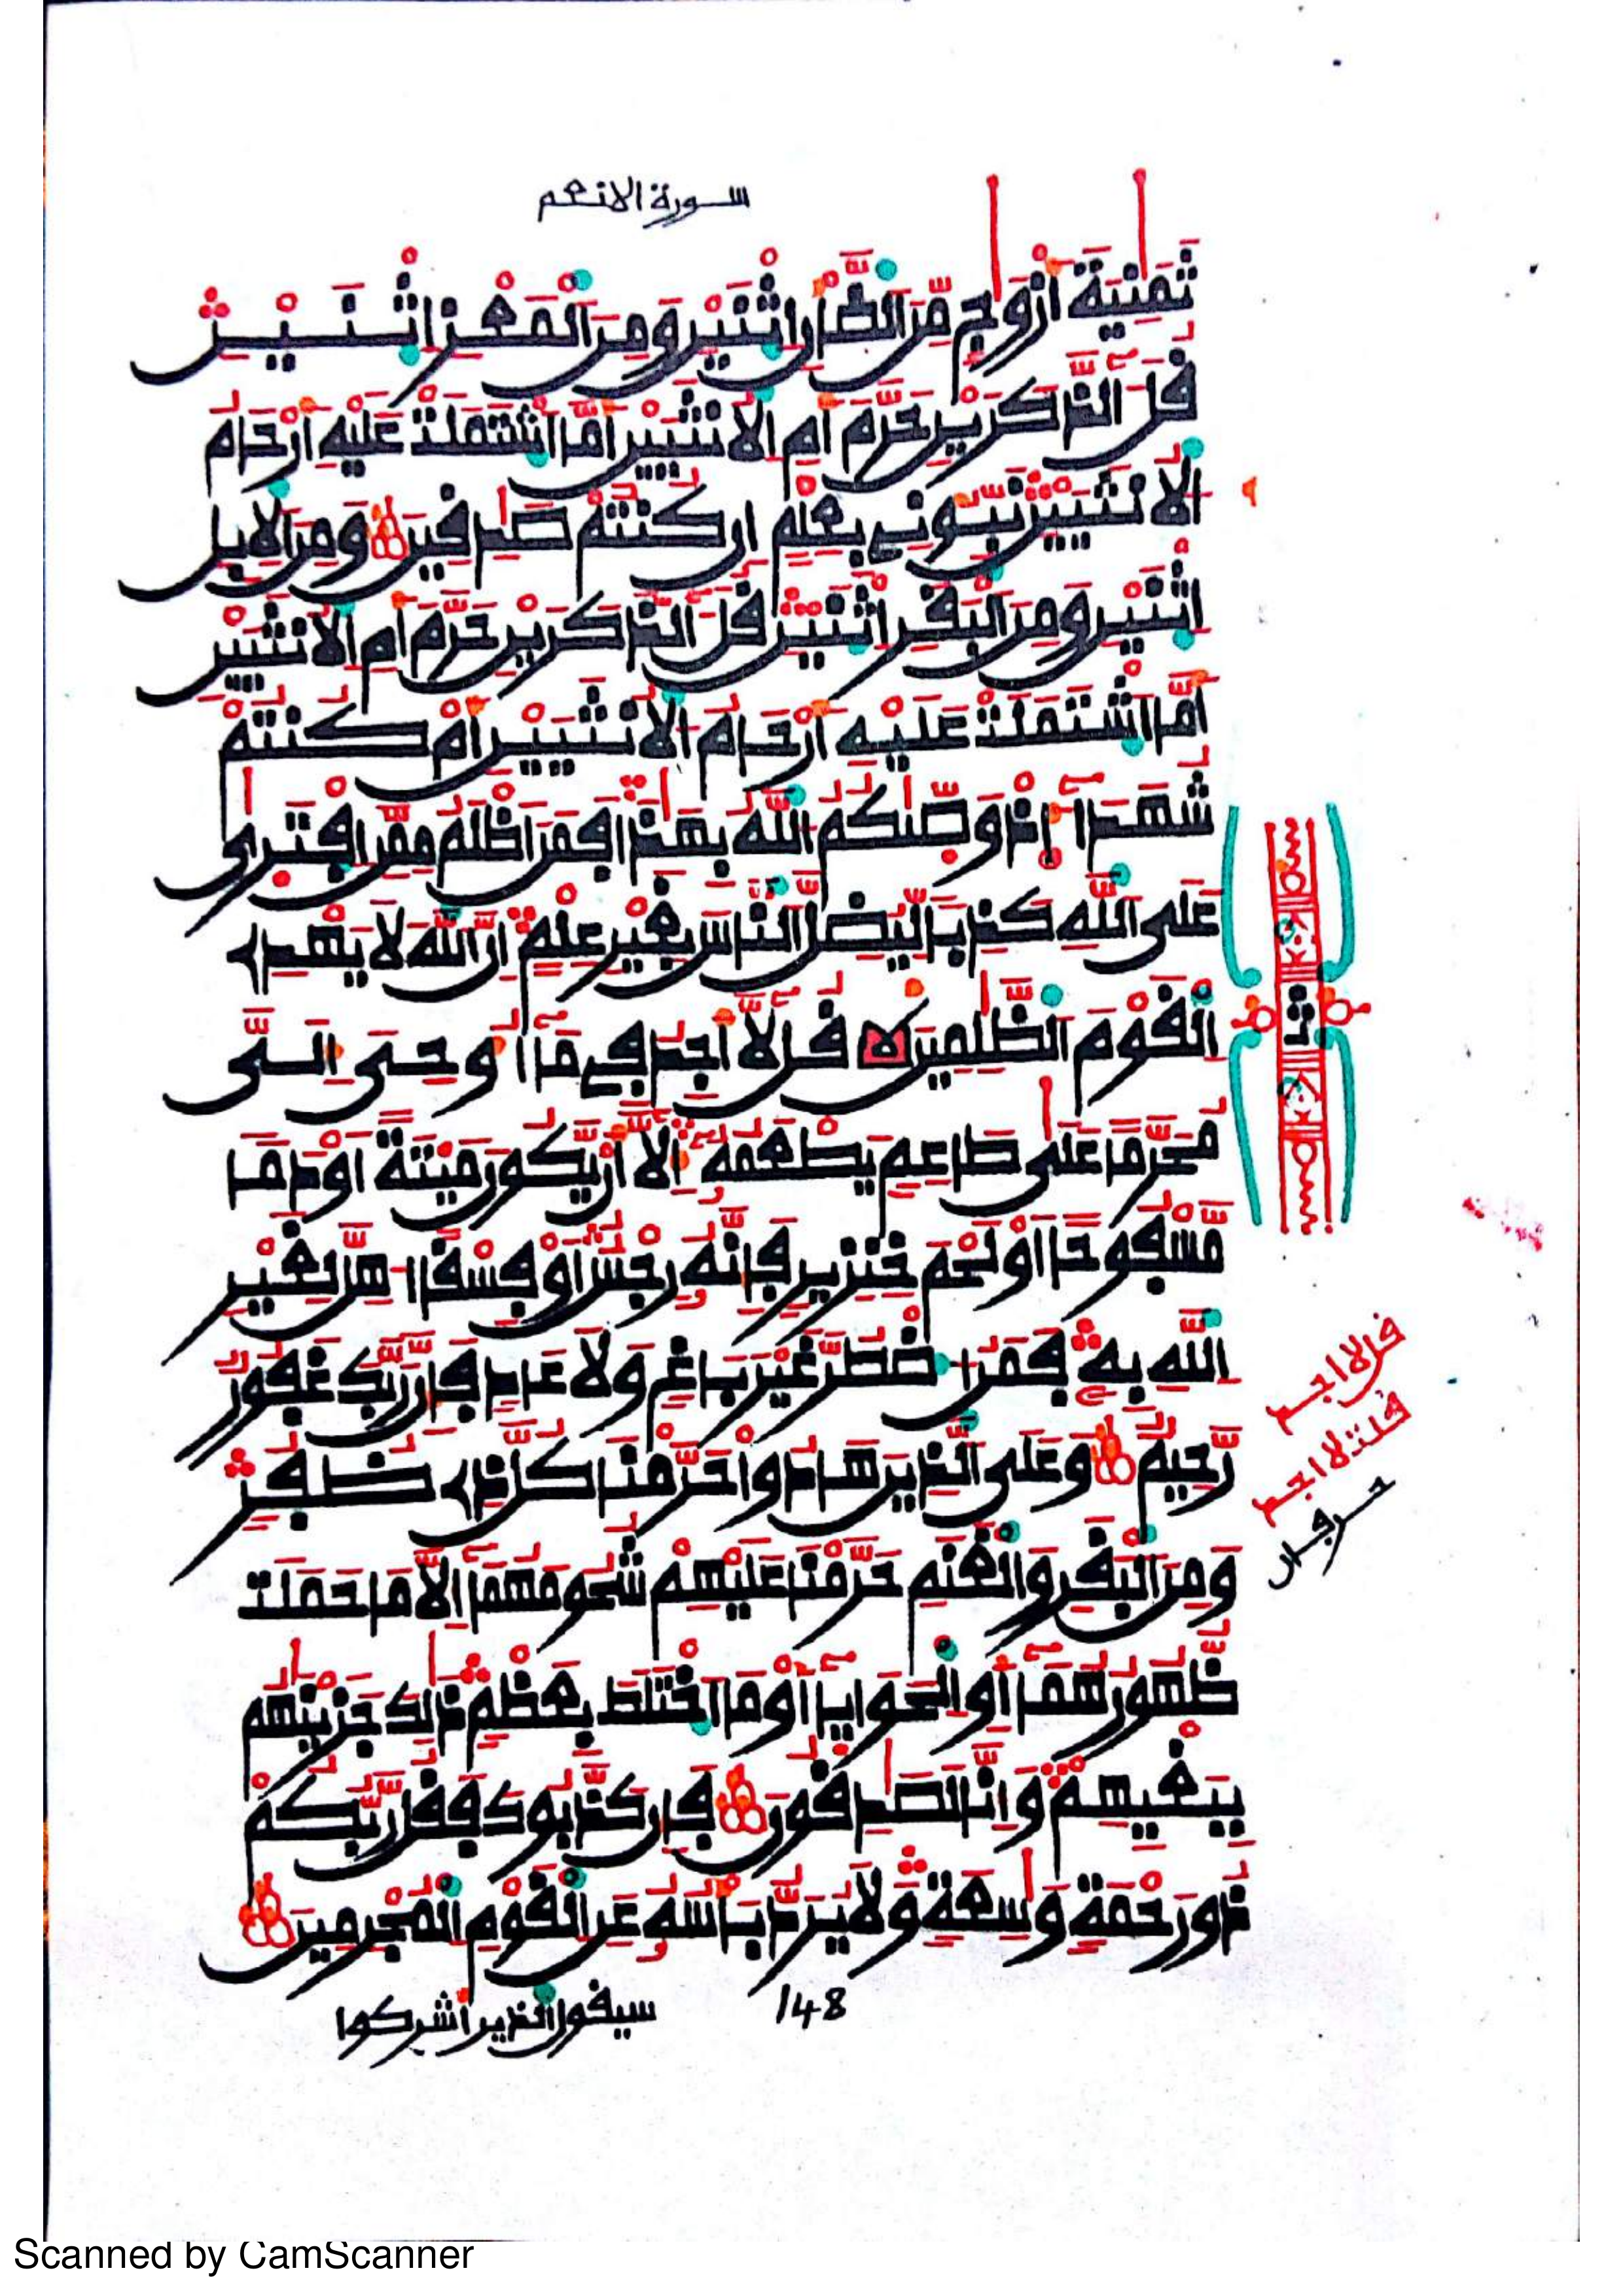 سورة الانعم
ثَمَٰنِيَةَ أَزْوَٰجٖ مِّنَ اَ۬لضَّأْنِ اِ۪ثْنَيْنِ وَمِنَ اَ۬لْمَعْزِ اِ۪ثْنَيْنِ
قُلَ ءَآلذَّكَرَيْنِ حَرَّمَ أَمِ اِ۬لُانثَيَيْنِ أَمَّا اَ۪شْتَمَلَتْ عَلَيْهِ أَرْحَامُ
اُ۬لُانثَيَيْنِ نَبِّـُٔونِے بِعِلْمٍ اِن كُنتُمْ صَٰدِقِينَ وَمِنَ اَ۬لِابِلِ
اِ۪ثْنَيْنِ وَمِنَ اَ۬لْبَقَرِ اِ۪ثْنَيْنِ قُلَ ءَآلذَّكَرَيْنِ حَرَّمَ أَمِ اِ۬لُانثَيَيْنِ
أَمَّا اَ۪شْتَمَلَتْ عَلَيْهِ أَرْحَامُ اُ۬لُانثَيَيْنِ أَمْ كُنتُمْ
شُهَدَآءَ اِذْ وَصّ۪يٰكُمُ اُ۬للَّهُ بِهَٰذَا فَمَنَ اَظْلَمُ مِمَّنِ اِ۪فْتَر۪يٰ
عَلَي اَ۬للَّهِ كَذِباٗ لِّيُضِلَّ اَ۬لنَّاسَ بِغَيْرِ عِلْمٍ اِنَّ اَ۬للَّهَ لَا يَهْدِے
اِ۬لْقَوْمَ اَ۬لظَّٰلِمِينَ قُل لَّآ أَجِدُ فِے مَآ أُوحِيَ إِلَيَّ
مُحَرَّماً عَلَيٰ طَاعِمٖ يَطْعَمُهُۥٓ إِلَّآ أَنْ يَّكُونَ مَيْتَةً اَوْ دَماٗ
مَّسْفُوحاً اَوْ لَحْمَ خِنزِيرٖ فَإِنَّهُۥ رِجْسٌ اَوْ فِسْقاً اُهِلَّ لِغَيْرِ
اِ۬للَّهِ بِهِۦ فَمَنُ اُ۟ضْطُرَّ غَيْرَ بَاغٖ وَلَا عَادٖ فَإِنَّ رَبَّكَ غَفُورٞ
رَّحِيمٞ وَعَلَي اَ۬لذِينَ هَادُواْ حَرَّمْنَا كُلَّ ذِے ظُفُرٖ
وَمِنَ اَ۬لْبَقَرِ وَالْغَنَمِ حَرَّمْنَا عَلَيْهِمْ شُحُومَهُمَآ إِلَّا مَا حَمَلَت
ظُّهُورُهُمَآ أَوِ اِ۬لْحَوَايَآ أَوْ مَا اَ۪خْتَلَطَ بِعَظْمٖ ذَٰلِكَ جَزَيْنَٰهُم
بِبَغْيِهِمْ وَإِنَّا لَصَٰدِقُونَ فَإِن كَذَّبُوكَ فَقُل رَّبُّكُمْ
ذُو رَحْمَةٖ وَٰسِعَةٖ وَلَا يُرَدُّ بَأْسُهُۥ عَنِ اِ۬لْقَوْمِ اِ۬لْمُجْرِمِينَ
ثمن
قل لا اجد
قلت لا اجد
حرفان
148
سيقول الذين أشركوا
Scanned by CamScanner